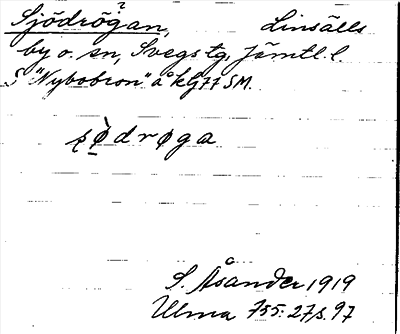 Sjödrögan, Linsälls
by o. sn, Svegs tg, Jämtl. l.
S "Nybobron" å kG77 SM.
sø̀drøga
S. Åsander 1919
Ulma 755:27, s. 97